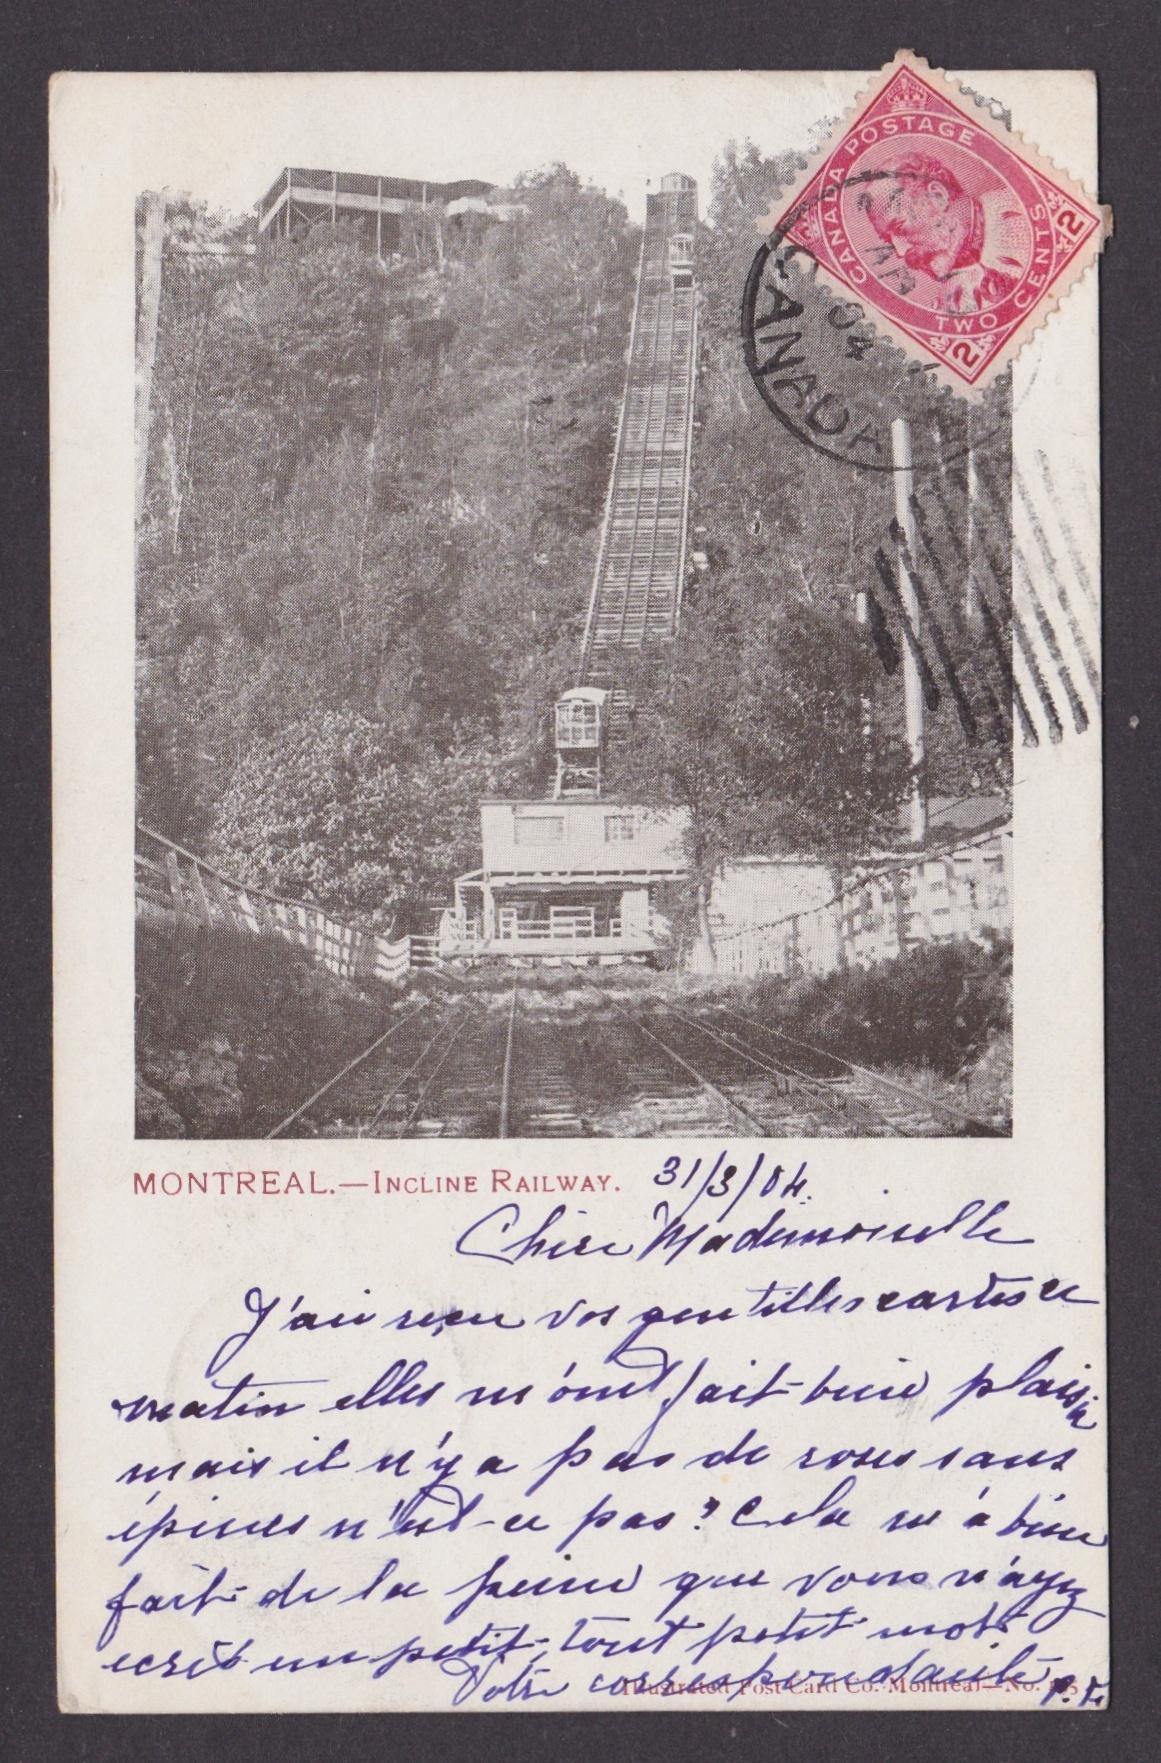 CANADA POSTAGE
TWO CENTS
2
2
CANADA
04
MONTREAL.—INCLINE RAILWAY.
31/3/04.
Chère Mademoiselle
J'ai reçu vos gentilles cartes ce
matin elles m'ont fait bien plaisir
mais il n'y a pas de roses sans
épines n'est-ce pas? Cela m'a bien
fait de la peine que vous n'ayez
ecrit un petit, tout petit mot
Votre correspondante
Illustrated Post Card Co. Montreal—No.